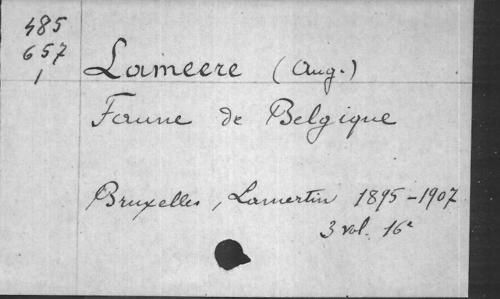 485
657
1
Lameere (Aug.)
Faune de Belgique
Bruxelles, Lamertin 1895-1907
3 vol. 16°